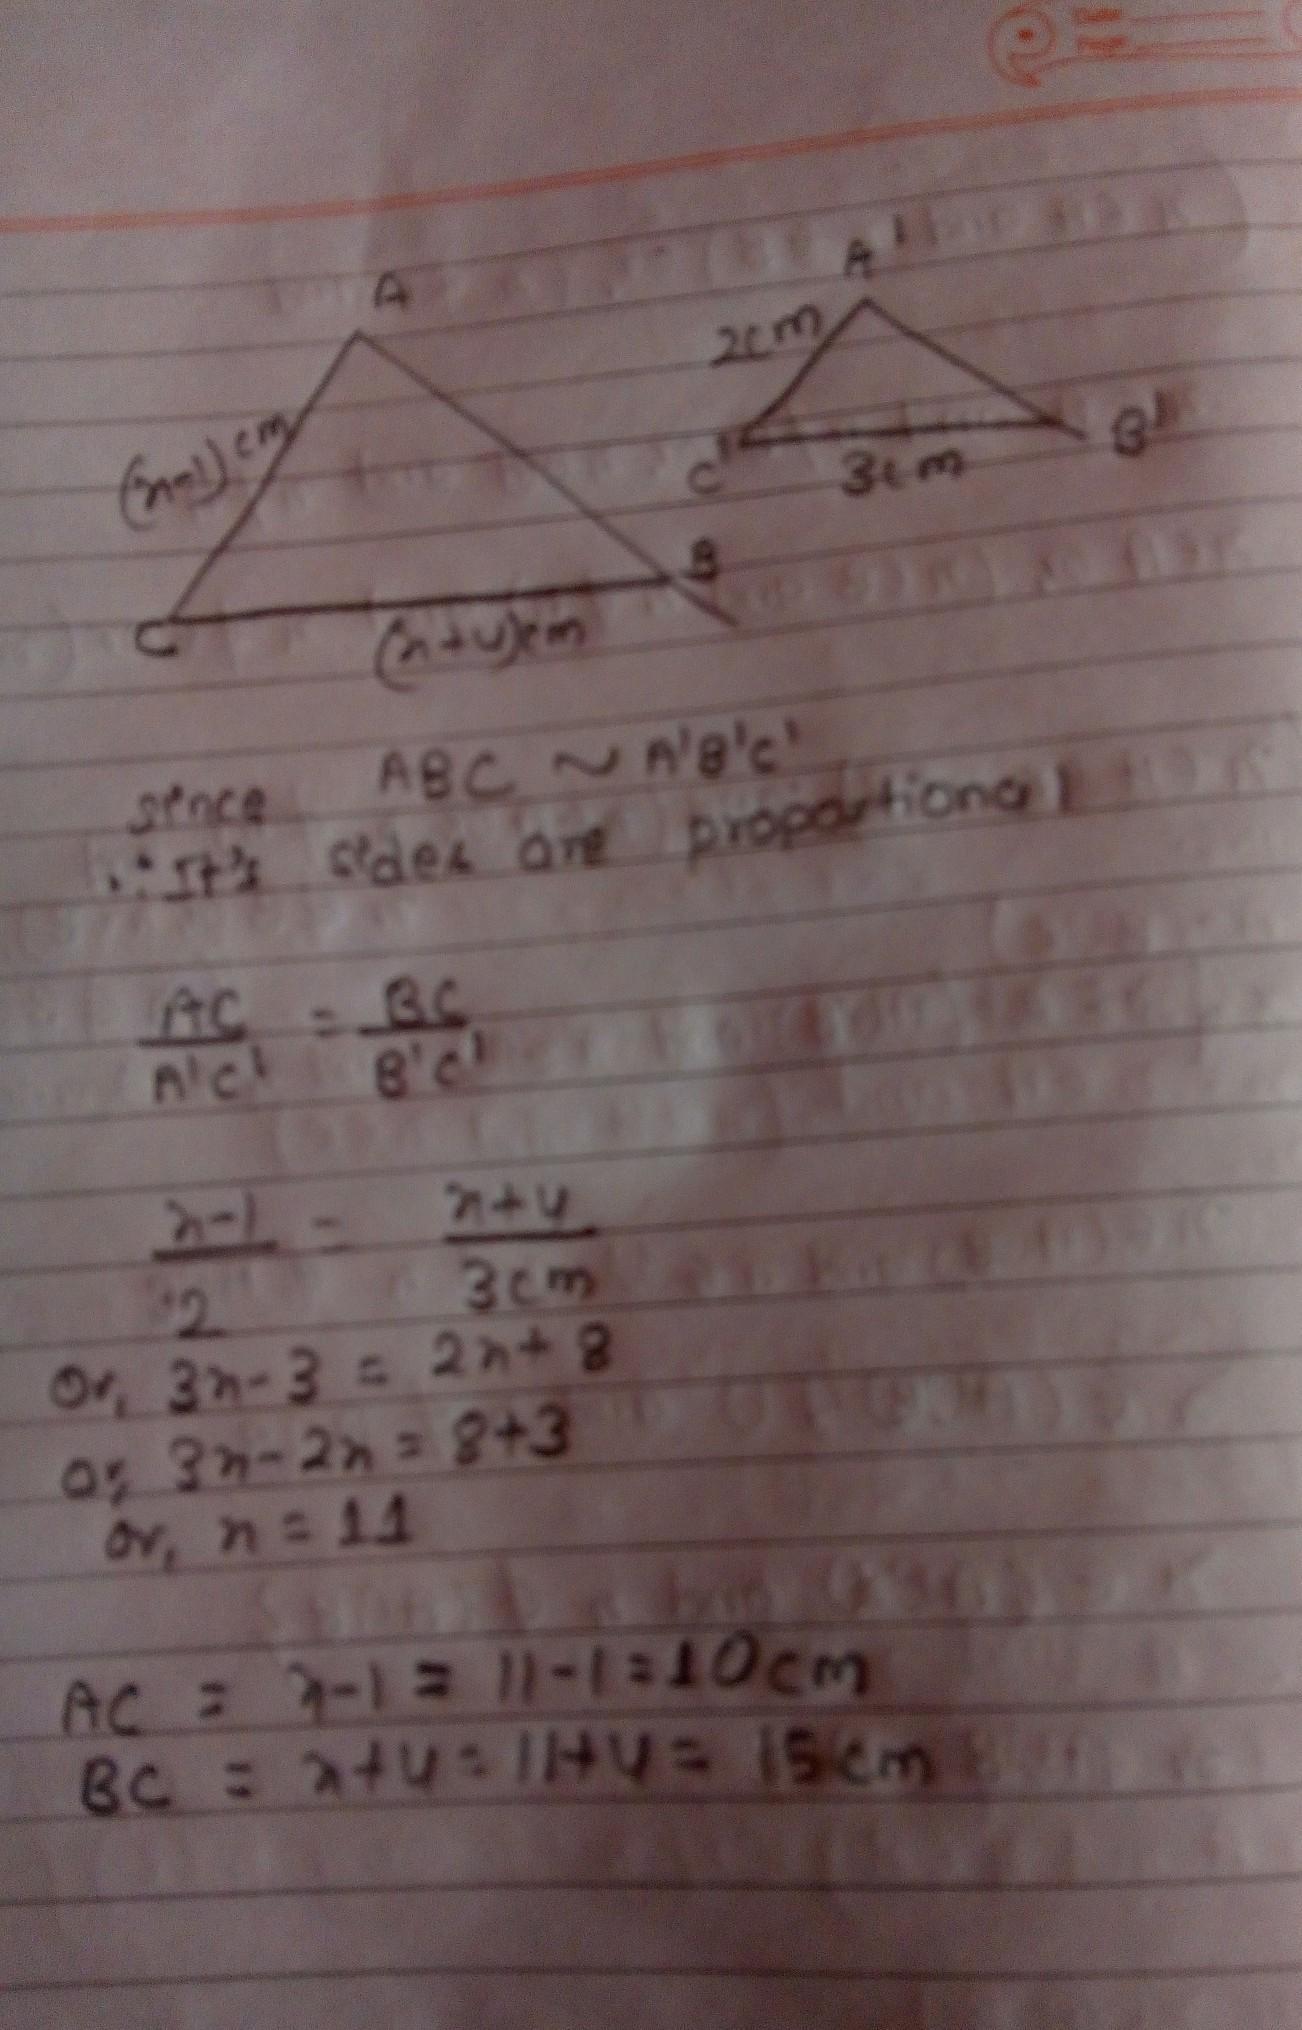 A
A'
2cm
(x-1)cm
C'
3cm
B'
B
C
(x+4)cm
since ABC ~ A'B'C'
∴ It's sides are proportional
AC/A'C' = BC/B'C'
x-1/2 = x+4/3cm
Or, 3x-3 = 2x+8
Or, 3x-2x = 8+3
or, x = 11
AC = x-1 = 11-1=10cm
BC = x+4=11+4= 15cm